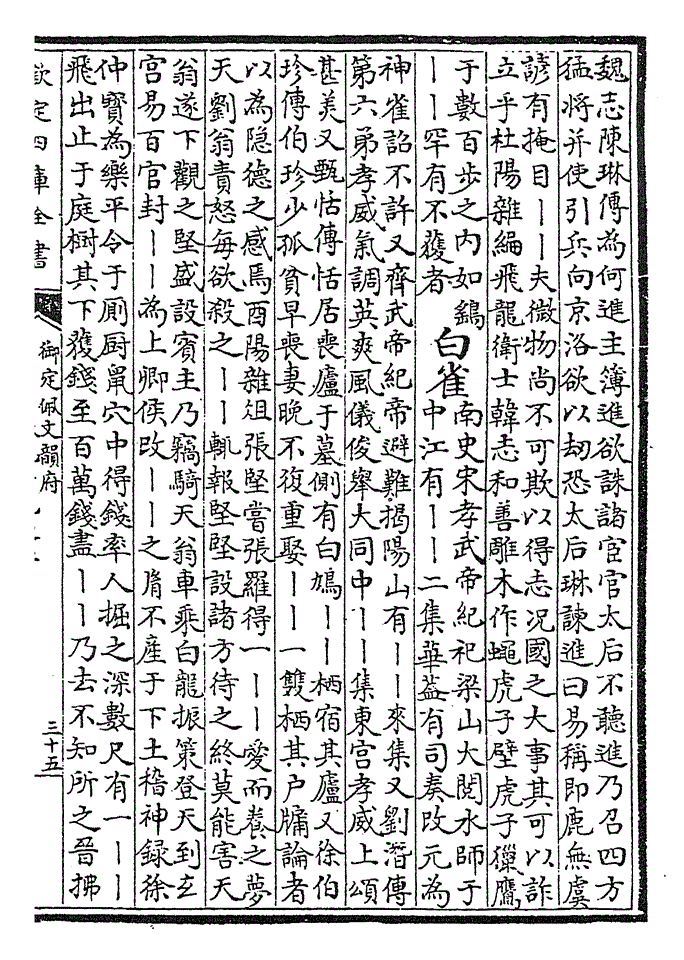 魏志陳琳傳為何進主簿進欲誅諸宦官太后不聽進乃召四方
猛將并使引兵向京洛欲以劫恐太后琳諫進曰易稱即鹿無虞
諺有掩目丨丨夫微物尚不可欺以得志况國之大事其可以詐
立乎杜陽雜編飛龍衛士韓志和善雕木作蠅虎子壁虎子獵鷹
于數百步之内如鷂
丨丨罕有不獲者
白雀
南史宋孝武帝紀祀梁山大閱水師于
中江有丨丨二集華葢有司奏改元為
神雀詔不許又齊武帝紀帝避難揭陽山有丨丨來集又劉潛傳
第六弟孝威氣調英爽風儀俊舉大同中丨丨集東宮孝威上頌
甚美又甄恬傳恬居喪廬于墓側有白鳩丨丨栖宿其廬又徐伯
珍傳伯珍少孤貧早喪妻晚不復重娶丨丨一雙栖其户牖論者
以為隐德之感焉酉陽雜俎張堅嘗張羅得一丨丨愛而養之夢
天劉翁責怒每欲殺之丨丨輒報堅堅設諸方待之終莫能害天
翁遂下觀之堅盛設賓主乃竊騎天翁車乗白龍振策登天到玄
宮易百官封丨丨為上卿侯改丨丨之胤不産于下土稽神録徐
仲寶為樂平令于厠厨鼠穴中得錢率人掘之深數尺有一丨丨
飛出止于庭樹其下獲錢至百萬錢盡丨丨乃去不知所之晉拂
欽定四庫全書
御定佩文韻府
三十五